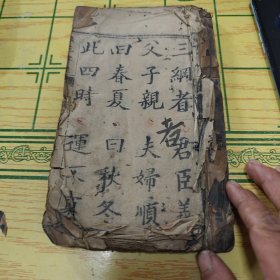 三綱者 君臣義
父子親 夫婦順
曰春夏 曰秋冬
此四時 運不
者